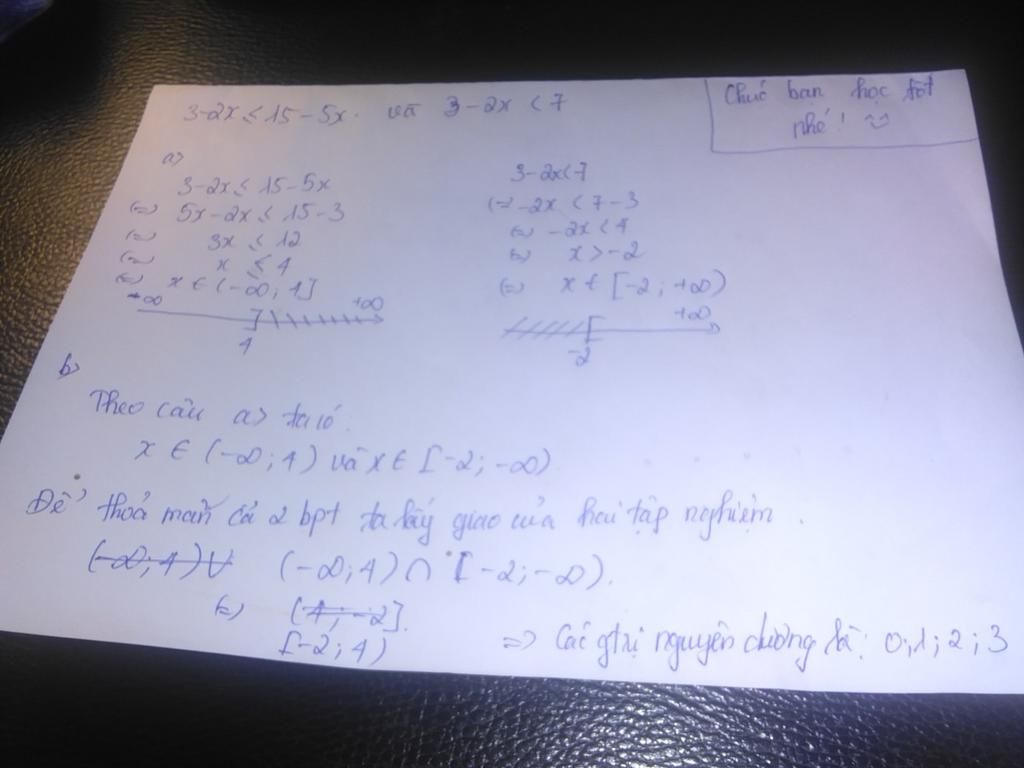 3-2x ≤ 15-5x. và 3-2x < 7
Chúc bạn học tốt
nhé!
a>
3-2x ≤ 15-5x
(=) 5x-2x ≤ 15-3
(=) 3x ≤ 12
(=) x ≤ 4
(=) x ∈ (-∞; 4]
-∞ +∞
4
3-2x<7
(=) -2x < 7-3
(=) -2x < 4
(=) x > -2
(=) x ∈ [-2; +∞)
+∞
-2
b>
Theo câu a> ta có.
x ∈ (-∞; 4) và x ∈ [-2; -∞)
Để thoả mãn cả 2 bpt ta lấy giao của hai tập nghiệm.
(-∞; 4) ∪ (-∞; 4) ∩ [-2; -∞).
(=) [4; -2].
[-2; 4) => Các gtrị nguyên dương là: 0; 1; 2; 3